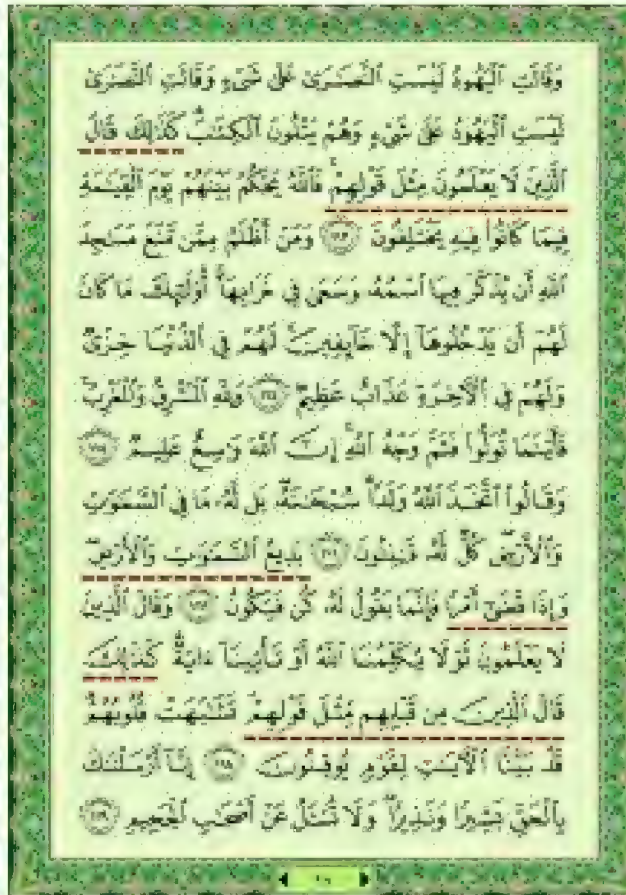 وَقَالَتِ ٱلْيَهُودُ لَيْسَتِ ٱلنَّصَٰرَىٰ عَلَىٰ شَىْءٍ وَقَالَتِ ٱلنَّصَٰرَىٰ
لَيْسَتِ ٱلْيَهُودُ عَلَىٰ شَىْءٍ وَهُمْ يَتْلُونَ ٱلْكِتَٰبَ ۗ كَذَٰلِكَ قَالَ
ٱلَّذِينَ لَا يَعْلَمُونَ مِثْلَ قَوْلِهِمْ ۚ فَٱللَّهُ يَحْكُمُ بَيْنَهُمْ يَوْمَ ٱلْقِيَٰمَةِ
فِيمَا كَانُوا۟ فِيهِ يَخْتَلِفُونَ ١١٣ وَمَنْ أَظْلَمُ مِمَّن مَّنَعَ مَسَٰجِدَ
ٱللَّهِ أَن يُذْكَرَ فِيهَا ٱسْمُهُۥ وَسَعَىٰ فِى خَرَابِهَآ ۚ أُو۟لَٰٓئِكَ مَا كَانَ
لَهُمْ أَن يَدْخُلُوهَآ إِلَّا خَآئِفِينَ ۚ لَهُمْ فِى ٱلدُّنْيَا خِزْىٌ
وَلَهُمْ فِى ٱلْءَاخِرَةِ عَذَابٌ عَظِيمٌ ١١٤ وَلِلَّهِ ٱلْمَشْرِقُ وَٱلْمَغْرِبُ ۚ
فَأَيْنَمَا تُوَلُّوا۟ فَثَمَّ وَجْهُ ٱللَّهِ ۚ إِنَّ ٱللَّهَ وَٰسِعٌ عَلِيمٌ ١١٥
وَقَالُوا۟ ٱتَّخَذَ ٱللَّهُ وَلَدًا ۗ سُبْحَٰنَهُۥ ۖ بَل لَّهُۥ مَا فِى ٱلسَّمَٰوَٰتِ
وَٱلْأَرْضِ ۖ كُلٌّ لَّهُۥ قَٰنِتُونَ ١١٦ بَدِيعُ ٱلسَّمَٰوَٰتِ وَٱلْأَرْضِ ۖ
وَإِذَا قَضَىٰٓ أَمْرًا فَإِنَّمَا يَقُولُ لَهُۥ كُن فَيَكُونُ ١١٧ وَقَالَ ٱلَّذِينَ
لَا يَعْلَمُونَ لَوْلَا يُكَلِّمُنَا ٱللَّهُ أَوْ تَأْتِينَآ ءَايَةٌ ۗ كَذَٰلِكَ
قَالَ ٱلَّذِينَ مِن قَبْلِهِم مِّثْلَ قَوْلِهِمْ ۘ تَشَٰبَهَتْ قُلُوبُهُمْ ۗ
قَدْ بَيَّنَّا ٱلْءَايَٰتِ لِقَوْمٍ يُوقِنُونَ ١١٨ إِنَّآ أَرْسَلْنَٰكَ
بِٱلْحَقِّ بَشِيرًا وَنَذِيرًا ۖ وَلَا تُسْـَٔلُ عَنْ أَصْحَٰبِ ٱلْجَحِيمِ ١١٩